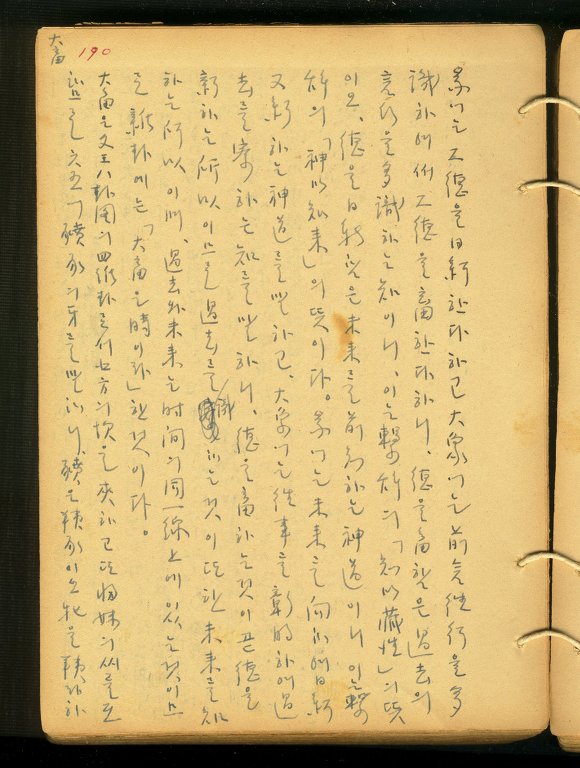 大畜 190
彖에는 그 德을 日新한다 하고 大象에는 前言往行을 多
識하여써 그 德을 畜한다 하니, 德을 畜함은 過去의
言行을 多識하는 知이니, 이는 繫辭의 「知以藏往」의 뜻
이오, 德을 日新함은 未來를 前知하는 神道이니 이는 繫
辭의 「神以知來」의 뜻이다. 彖에는 未來를 向하여 日新
又新하는 神道를 말하고, 大象에는 往事를 彰明하여 過
去를 察하는 知를 말하니, 德을 畜하는 것이 곧 德을
新하는 所以이므로 過去를 識하는 것이 또한 未來를 知
하는 所以이며, 過去와 未來는 时间의 同一線上에 있는 것이므
로 雜卦에는 「大畜은 時이라」 한 것이다.
大畜은 文王八卦图의 四維卦로서 北方의 坎을 夾하고 또 歸妹의 씨를
六五에 豶豕의 牙를 말하니, 豶은 이오 牝을